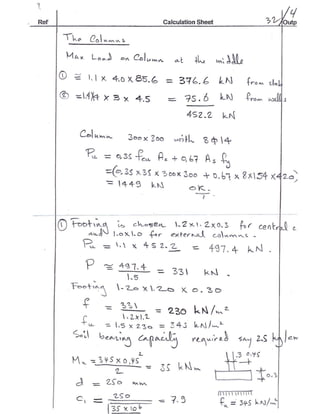 Ref Calculation Sheet 32/4 Outp
The Columns
Max Load on Column at the middle
① ≅ 1.1 x 4.0 x 85.6 = 376.6 kN from slab
② = x 3 x 4.5 = 75.6 kN from walls
452.2 kN
Column 300x300 with 8φ14
Pu = 0.35 fcu Ac + 0.67 As fy
=(0.35 x 35 x 300x300 + 0.67 x 8x154x420)
= 1449 kN OK.
① Footing is chosen 1.2x1.2x0.3 for central c
and 1.0x1.0 for external columns.
Pu = 1.1 x 452.2 = 497.4 kN.
P ≅ 497.4
1.5 = 331 kN.
Footing 1.20x1.20 x 0.30
f = 331
1.2x1.2 = 230 kN/m2
fu = 1.5 x 230 = 345 kN/m2
Soil bearing capacity required say 2.5 kg/cm
Mu = 345x0.45²
2 = 35 kNm
.3 0.45
d = 250 mm
0.3
C1 = 250
35x10⁶ = 7.9
fu = 345 kN/m2